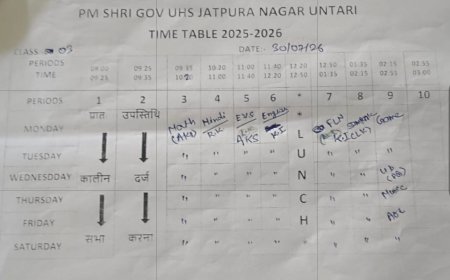 PM SHRI GOV UHS JATPURA NAGAR UNTARI
TIME TABLE 2025-2026
CLASS - 03 DATE:- 30/07/26
PERIODS 09:00 09:25 09:35 10:20 11:00 11:40 12:20 12:50 01:35 02:15 02:55
TIME 09:25 09:35 10:20 11:00 11:40 12:20 12:50 01:35 02:15 02:55 03:00
PERIODS 1 2 3 4 5 6 * 7 8 9 10
MONDAY प्रात उपस्तिथि Math Hindi EVS English * FLN Game
(AKS) RK AKS RJ L
TUESDAY " " " " U " "
WEDNESDDAY कालीन दर्ज " " " " N " " Lib
THURSDAY " " " " C " " Music
FRIDAY " " " " H " "
SATURDAY सभा करना " " " " " " "